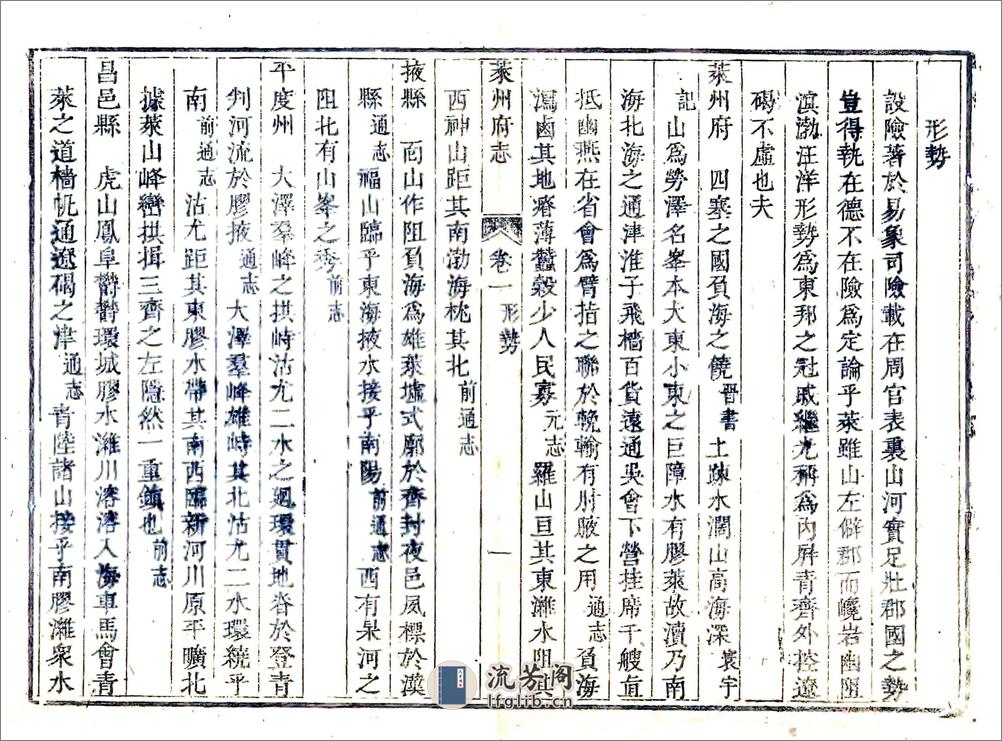 形勢
設險著於易象司險載在周官表裏山河實足壯郡國之勢
豈得執在德不在險為定論乎萊雖山左僻郡而巉岩幽阻
濱渤汪洋形勢為東邦之冠戚繼光稱為內屏青齊外控遼
碣不虛也夫
萊州府 四塞之國負海之饒晉書 土疎水濶山高海深寰宇
記 山為勞澤名峯本大東小東之巨障水有膠萊故瀆乃南
海北海之通津淮子飛檣百貨遠通吳會下營挂席千艘直
抵幽燕在省會為臂指之聯於輓輸有肘腋之用通志 負海
瀉鹵其地瘠薄蠶穀少人民寡元志 羅山亘其東濰水阻其
萊州府志 卷一 形勢 一
西神山距其南渤海枕其北前通志
掖縣 商山作阻負海為雄萊墟式廓於齊封夜邑夙標於漢
縣通志 福山臨乎東海掖水接乎南陽前通志 西有杲河之
阻北有山峯之秀前志
平度州 大澤羣峰之拱峙沽尤二水之廻環貫地脊於登青
判河流於膠掖通志 大澤羣峰雄峙其北沽尤二水環繞乎
南前通志 沽尤距其東膠水帶其南西臨新河川原平曠北
據萊山峰巒拱揖三齊之左隱然一重鎮也前志
昌邑縣 虎山鳳阜欝欝環城膠水濰川溶溶入海車馬會青
萊之道檣帆通遼碣之津通志 青陸諸山接乎南膠濰衆水
流芳阁
lfglib.cn